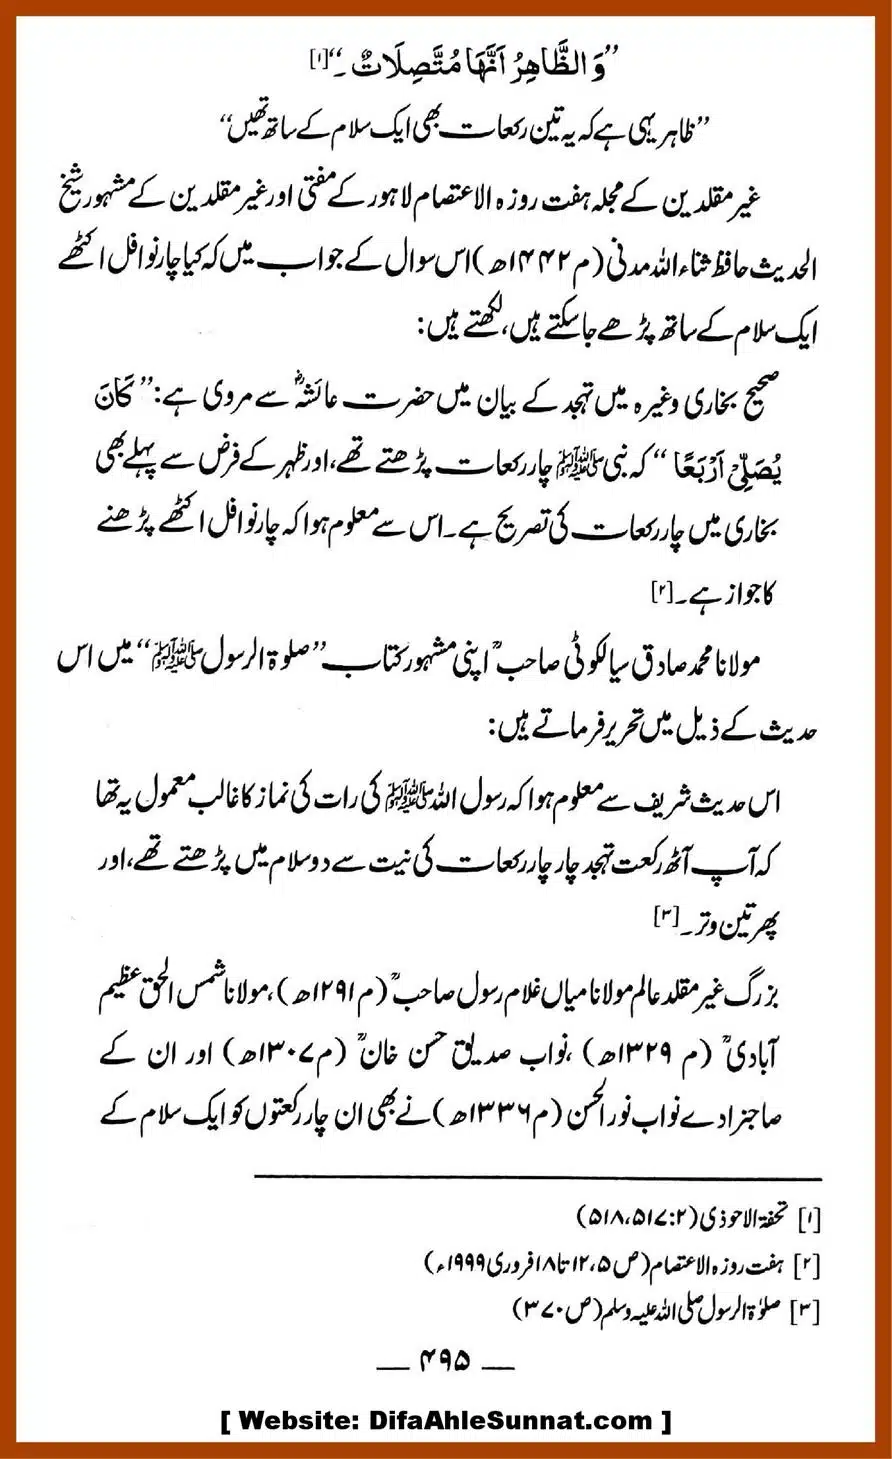 ”وَالظَّاهِرُ اَنَّهَا مُتَّصِلَاتٌ۔“[۱]
”ظاہر یہی ہے کہ یہ تین رکعات بھی ایک سلام کے ساتھ تھیں“
غیر مقلدین کے مجلہ ہفت روزہ الاعتصام لاہور کے مفتی اور غیر مقلدین کے مشہور شیخ
الحدیث حافظ ثناء اللہ مدنی (م ۱۴۴۲ھ) اس سوال کے جواب میں کہ کیا چار نوافل اکٹھے
ایک سلام کے ساتھ پڑھے جاسکتے ہیں، لکھتے ہیں:
صحیح بخاری وغیرہ میں تہجد کے بیان میں حضرت عائشہؓ سے مروی ہے: ”كَانَ
يُصَلِّيْ اَرْبَعًا“ کہ نبی ﷺ چار رکعات پڑھتے تھے، اور ظہر کے فرض سے پہلے بھی
بخاری میں چار رکعات کی تصریح ہے۔ اس سے معلوم ہوا کہ چار نوافل اکٹھے پڑھنے
کا جواز ہے۔[۲]
مولانا محمد صادق سیالکوٹی صاحبؒ اپنی مشہور کتاب ”صلوۃ الرسول ﷺ“ میں اس
حدیث کے ذیل میں تحریر فرماتے ہیں:
اس حدیث شریف سے معلوم ہوا کہ رسول اللہ ﷺ کی رات کی نماز کا غالب معمول یہ تھا
کہ آپ آٹھ رکعت تہجد چار چار رکعات کی نیت سے دو سلام میں پڑھتے تھے، اور
پھر تین وتر۔[۳]
بزرگ غیر مقلد عالم مولانا میاں غلام رسول صاحبؒ (م ۱۲۹۱ھ)، مولانا شمس الحق عظیم
آبادیؒ (م ۱۳۲۹ھ)، نواب صدیق حسن خانؒ (م ۱۳۰۷ھ) اور ان کے
صاحبزادے نواب نور الحسن (م ۱۳۳۶ھ) نے بھی ان چار رکعتوں کو ایک سلام کے
[۱] تحفۃ الاحوذی (۲: ۵۱۷، ۵۱۸)
[۲] ہفت روزہ الاعتصام (ص ۵، ۱۲ تا ۱۸ فروری ۱۹۹۹ء)
[۳] صلوٰۃ الرسول صلی اللہ علیہ وسلم (ص ۳۷۰)
— ۴۹۵ —
[ Website: DifaAhleSunnat.com ]